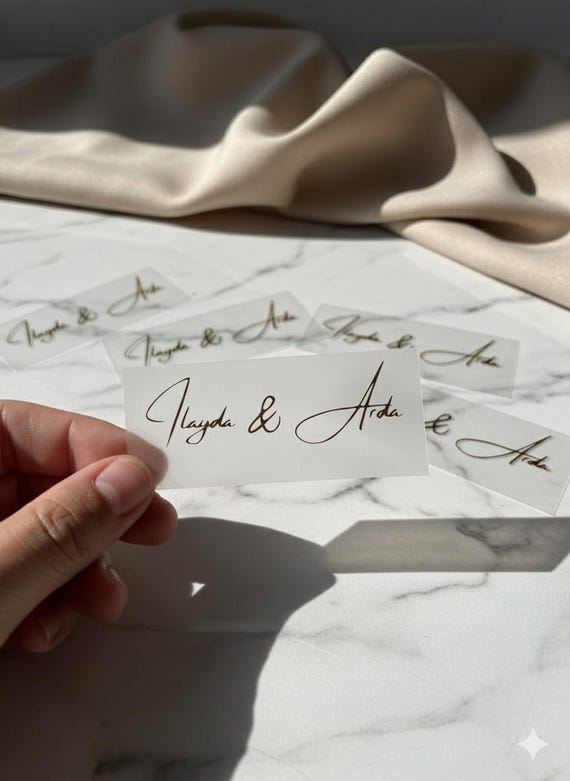 Ilayda & Arda
Ilayda & Arda
Ilayda & Arda
Ilayda & Arda
& Arda